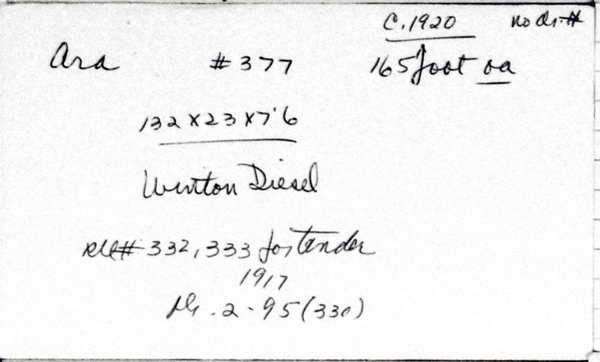 C. 1920 no Dr #
Ara #377 165 foot oa
132 x 23 x 7'6
Winton Diesel
# 332, 333 for Tender
1917
Dr. 2-95 (330)